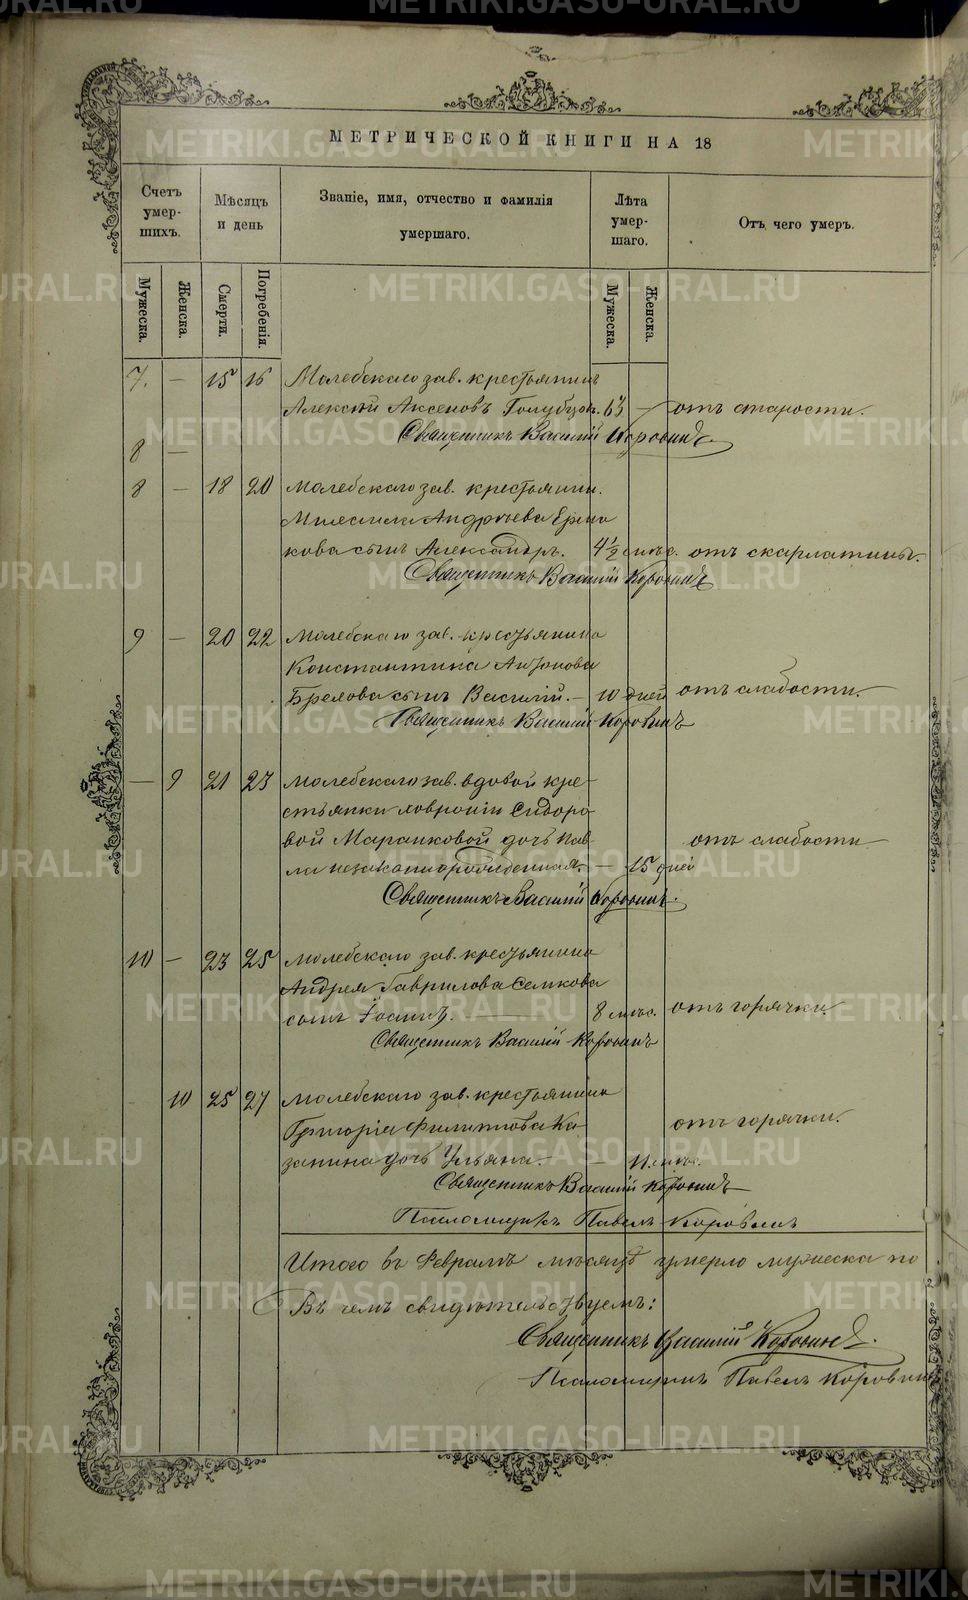 МЕТРИЧЕСКОЙ КНИГИ НА 18
Счетъ умер-шихъ.
Мѣсяцъ и день
Званіе, имя, отчество и фамилія
умершаго.
Лѣта умер-шаго.
Отъ чего умеръ.
Мужеска.
Женска.
Смерти.
Погребенія.
Мужеска.
Женска.
7. — 15 16 Молебскаго зав. крестьянинъ
Алексѣй Аксеновъ Голубцовъ. — отъ старости.
Священникъ Василій Коровинъ.
8 —
8 — 18 20 Молебскаго зав. крестьянина
Андреева Ерма
кова сынъ Александръ. 4½ мѣс. отъ скарлатины.
Священникъ Василій Коровинъ
9 — 20 22 Молебскаго зав. крестьянина
Константина Антонова
сынъ Василій. — 10 дней отъ слабости.
Священникъ Василій Коровинъ
— 9 21 23 Молебскаго зав. вдовой кре-
стьянки Сидоро
вой Маранковой дочь Пав-
ла незаконнорожденная. — 15 дней отъ слабости
Священникъ Василій Коровинъ.
10 — 23 25 Молебскаго зав. крестьянина
Андрея Гаврилова Семкова
сынъ Іосифъ. 8 мѣс. отъ горячки.
Священникъ Василій Коровинъ
10 25 27 Молебскаго зав. крестьянина
Григорія Филиппова Ка
занина дочь Ульяна. — 11 мѣс. отъ горячки.
Священникъ Василій Коровинъ
Псаломщикъ Павелъ Коровинъ
Итого въ Февралѣ мѣсяцѣ умерло мужеска по
Въ чемъ свидѣтельствуемъ:
Священникъ Василій Коровинъ.
Псаломщикъ Павелъ Коровинъ
METRIKI.GASO-URAL.RU